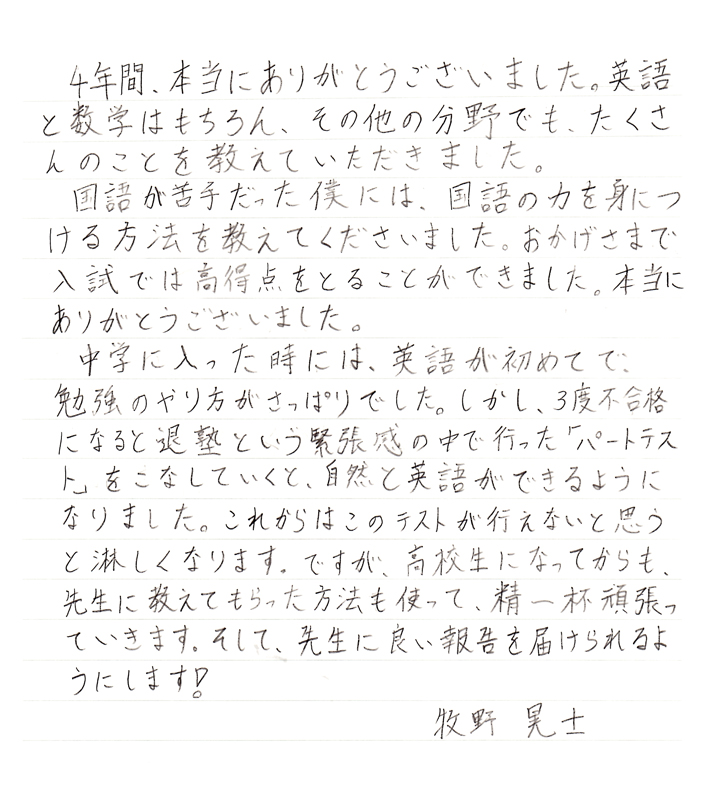 4年間、本当にありがとうございました。英語
と数学はもちろん、その他の分野でも、たくさ
んのことを教えていただきました。
国語が苦手だった僕には、国語の力を身につ
ける方法を教えてくださいました。おかげさまで
入試では高得点をとることができました。本当に
ありがとうございました。
中学に入った時には、英語が初めてで、
勉強のやり方がさっぱりでした。しかし、3度不合格
になると退塾という緊張感の中で行った「パートテス
ト」をこなしていくと、自然と英語ができるように
なりました。これからはこのテストが行えないと思う
と淋しくなります。ですが、高校生になってからも、
先生に教えてもらった方法も使って、精一杯頑張っ
ていきます。そして、先生に良い報告を届けられるよ
うにします!
牧野 晃士